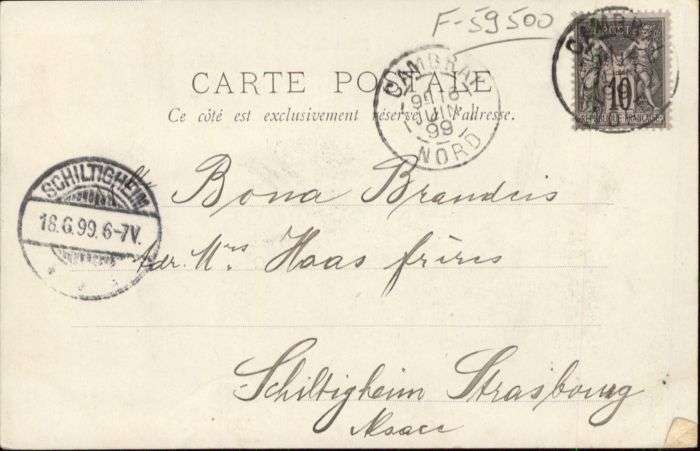 F-59500
POSTE
10
CARTE POSTALE
Ce côté est exclusivement réservé à l'adresse.
CAMBRAI
JUIN
99
NORD
SCHILTIGHEIM
18.6.99.6-7V.
Bona Brandeis
Adr. Mrs Haas frères
Schiltigheim Strasbourg
Alsace